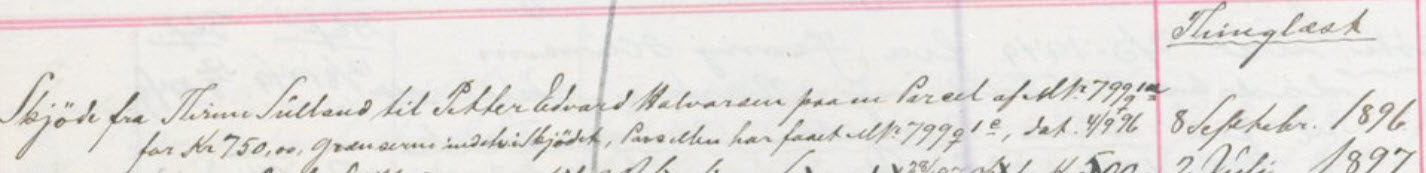 Thinglæst
Skjöde fra Thrine Sulland til Petter Edvard Halvorsen paa en Parcel af M.Nr. 799g1a
for Kr 750,00, Grænserne indtv i Skjödet, Parcellen har faaet M.Nr. 799g1e, dat. 4/9 96 8 Septebr. 1896
2 Juli 1897